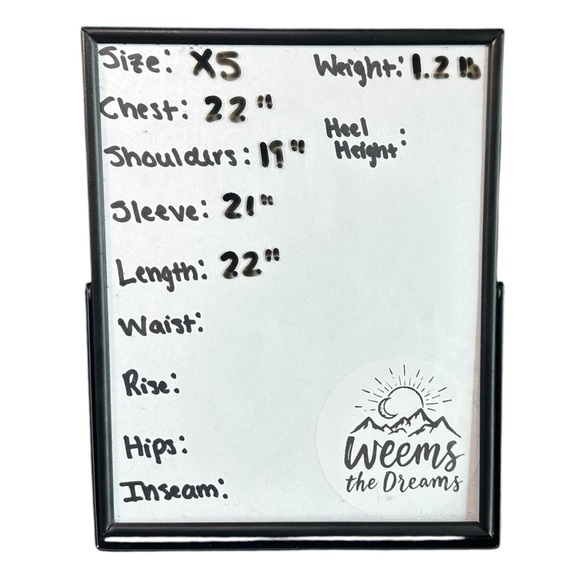 Size: XS
Weight: 1.2 lb
Chest: 22"
Heel
Height:
Shoulders: 19"
Sleeve: 21"
Length: 22"
Waist:
Rise:
Hips:
Inseam:
Weems
the Dreams